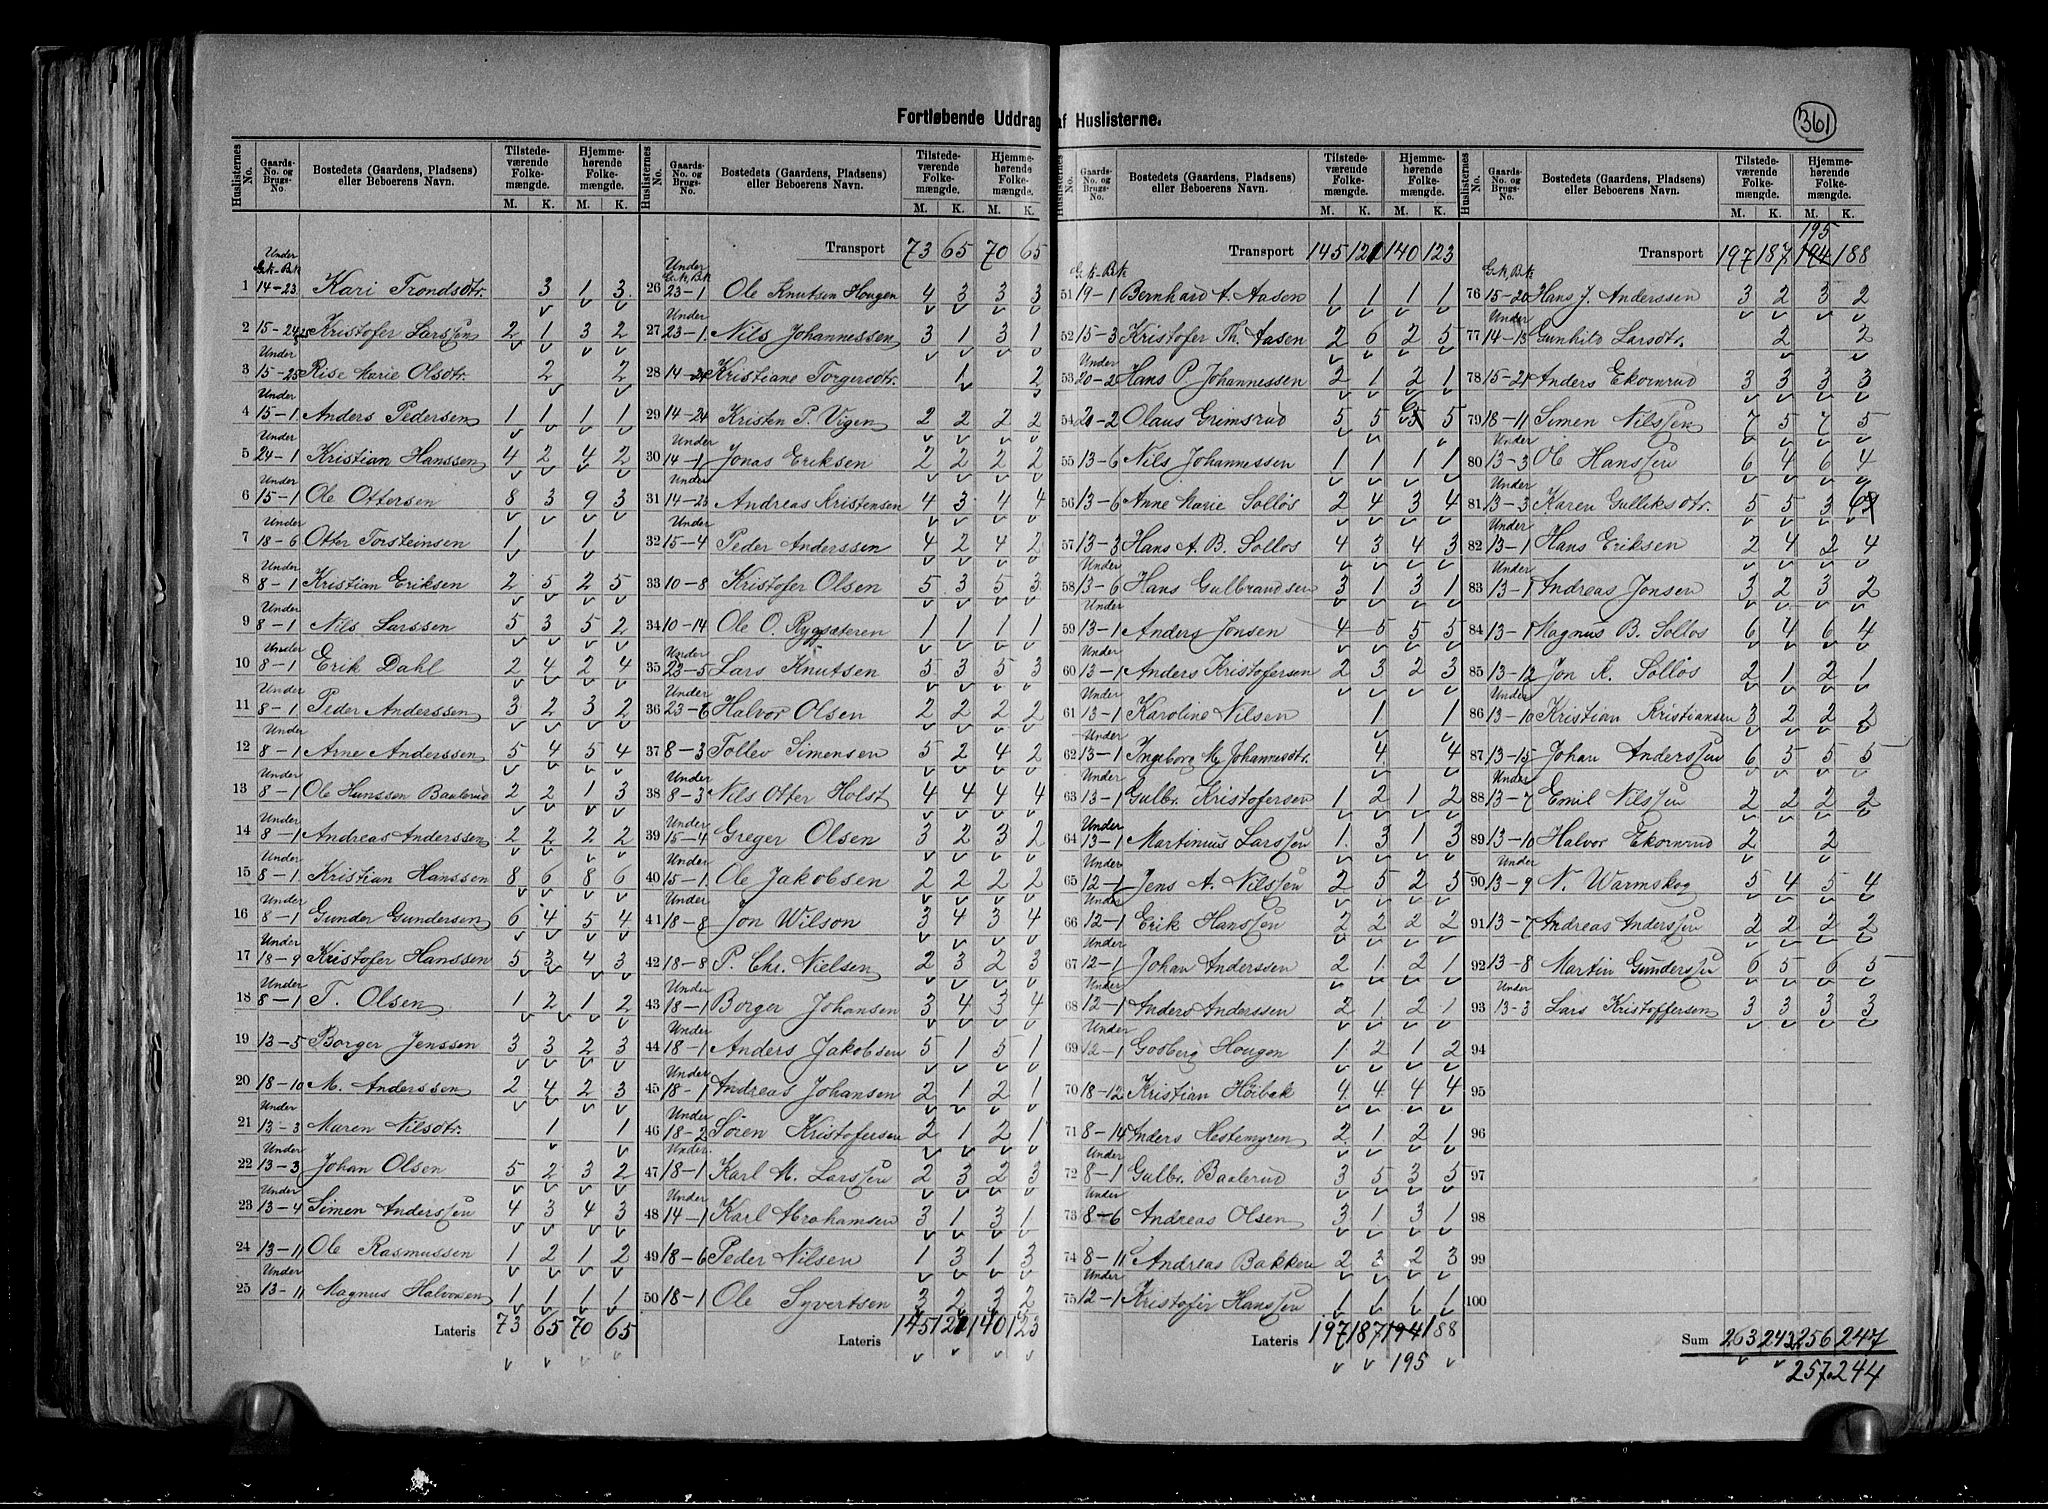 Fortløbende Uddrag af Huslisterne.
361
Huslisternes No. | Gaards-No. og Brugs-No. | Bostedets (Gaardens, Pladsens) eller Beboerens Navn. | Tilstedeværende Folkemængde. M. K. | Hjemmehørende Folkemængde. M. K.
Under Gk-Bk
1 14-23 Kari Trondsdtr. 3 1 3
2 15-24 Kristofer Larssen 2 1 3 2
3 Under 15-25 Rise Marie Olsdtr. 2 2
4 Under 15-1 Anders Pedersen 1 1 1 1
5 Under 24-1 Kristian Hanssen 4 2 4 2
6 Under 15-1 Ole Ottersen 8 3 9 3
7 Under 18-6 Otter Torsteinsen 1 1
8 Under 8-1 Kristian Eriksen 2 5 2 5
9 Under 8-1 Nils Larssen 5 3 5 2
10 Under 8-1 Erik Dahl 2 4 2 4
11 Under 8-1 Peder Anderssen 3 2 3 2
12 Under 8-1 Arne Anderssen 5 4 5 4
13 Under 8-1 Ole Hanssen Baalerud 2 2 1 3
14 Under 8-1 Andreas Anderssen 2 2 2 2
15 Under 8-1 Kristian Hanssen 8 6 8 6
16 Under 8-1 Gunder Gundersen 6 4 5 4
17 Under 18-9 Kristofer Hanssen 5 3 4 3
18 Under 8-1 T. Olsen 1 2 1 2
19 13-5 Borger Jenssen 3 3 2 3
20 18-10 M. Anderssen 2 4 2 3
21 Under 13-3 Maren Nilsdtr. 1 1
22 Under 13-3 Johan Olsen 5 2 3 2
23 Under 13-4 Simen Anderssen 4 3 4 3
24 13-11 Ole Rasmussen 1 2 1 2
25 Under 13-11 Magnus Halvorsen 1 1 1 1
Lateris 73 65 70 65
Transport 73 65 70 65
Under Gk, Bk
26 23-1 Ole Knutsen Hougen 4 3 3 3
27 Under 23-1 Nils Johannessen 3 1 3 1
28 14-24 Kristiane Torgersdtr. 1 2
29 14-24 Kristen P. Vigen 2 2 2 2
30 Under 14-1 Jonas Eriksen 2 2 2 2
31 Under 14-23 Andreas Kristensen 4 3 4 4
32 Under 15-4 Peder Anderssen 4 2 4 2
33 10-8 Kristofer Olsen 5 3 5 3
34 10-14 Ole O. Rygsæteren 1 1 1 1
35 Under 23-5 Lars Knutsen 5 3 5 3
36 Under 23-6 Halvor Olsen 2 2 2 2
37 8-3 Tollev Simensen 5 2 4 2
38 Under 8-3 Nils Otter Holst 4 4 4 4
39 Under 15-4 Greger Olsen 3 2 3 2
40 Under 15-1 Ole Jakobsen 2 2 2 2
41 Under 18-8 Jon Wilson 3 4 3 4
42 18-8 P. Chr. Nielsen 2 3 2 3
43 Under 18-1 Borger Johansen 3 4 3 4
44 Under 18-1 Anders Jakobsen 5 1 5 1
45 Under 18-1 Andreas Johansen 2 1 2 1
46 Under 18-2 Søren Kristofersen 2 1 2 1
47 Under 18-1 Karl M. Larssen 2 3 2 3
48 Under 14-1 Karl Abrahamsen 3 1 3 1
49 18-6 Peder Nilsen 1 3 1 3
50 18-1 Ole Syvertsen 3 2 3 2
Lateris 145 120 140 123
Transport 145 120 140 123
Gk-Bk
51 19-1 Bernhard A. Aasen 1 1 1 1
52 15-3 Kristofer Th. Aasen 2 6 2 5
53 Under 20-2 Hans P. Johannessen 2 1 2 1
54 20-2 Olaus Grimsrud 5 5 5 5
55 13-6 Nils Johannessen 1 1 1 1
56 13-6 Anne Marie Solløs 2 4 3 4
57 13-3 Hans A. B. Solløs 4 3 4 3
58 Under 13-6 Hans Gulbrandsen 3 1 3 1
59 Under 13-1 Anders Jonsen 4 5 5 5
60 Under 13-1 Anders Kristofersen 2 3 2 3
61 Under 13-1 Karoline Nilsen 1 1
62 Under 13-1 Ingeborg M. Johannesdtr. 4 4
63 Under 13-1 Gulbr. Kristofersen 1 2 1 2
64 Under 13-1 Martinius Larssen 1 3 1 3
65 Under 12-1 Jens A. Nilssen 2 5 2 5
66 Under 12-1 Erik Hanssen 2 2 2 2
67 Under 12-1 Johan Anderssen 2 1 2 1
68 Under 12-1 Anders Anderssen 2 1 2 1
69 Under 12-1 Godberg Hougen 1 2 1 2
70 18-12 Kristian Høibak 4 4 4 4
71 8-14 Anders Hestemyren 2 1 2 1
72 Under 8-1 Gulbr. Baalerud 3 5 3 5
73 8-6 Andreas Olsen 3 1 3 1
74 8-11 Andreas Bakken 2 3 2 3
75 Under 12-1 Kristofer Hanssen 1 1 1 1
Lateris 197 187 194 188
195
195
Transport 197 187 194 188
Gk, Bk
76 15-20 Hans J. Anderssen 3 2 3 2
77 Under 14-13 Gunhild Larsdtr. 2 2
78 15-21 Anders Ekornrud 3 3 3 3
79 18-11 Simen Nilssen 7 5 7 5
80 Under 13-3 Ole Hanssen 6 4 6 4
81 Under 13-3 Karen Gulliksdtr. 5 5 3
82 Under 13-1 Hans Eriksen 2 4 2 4
83 Under 13-1 Andreas Jonsen 3 2 3 2
84 13-1 Magnus B. Solløs 6 4 6 4
85 13-12 Jon A. Solløs 2 1 2 1
86 Under 13-10 Kristian Kristiansen 3 2 2 2
87 13-15 Johan Anderssen 6 5 5 5
88 Under 13-7 Emil Nilssen 2 2 2 2
89 13-10 Halvor Ekornrud 2 2
90 Under 13-9 N. Warmskog 5 4 5 4
91 13-7 Andreas Anderssen 2 2 2 2
92 13-8 Martin Gunderssen 6 5 6 5
93 Under 13-3 Lars Kristoffersen 3 3 3 3
94
95
96
97
98
99
100
Sum 263 243 256 247
257 244